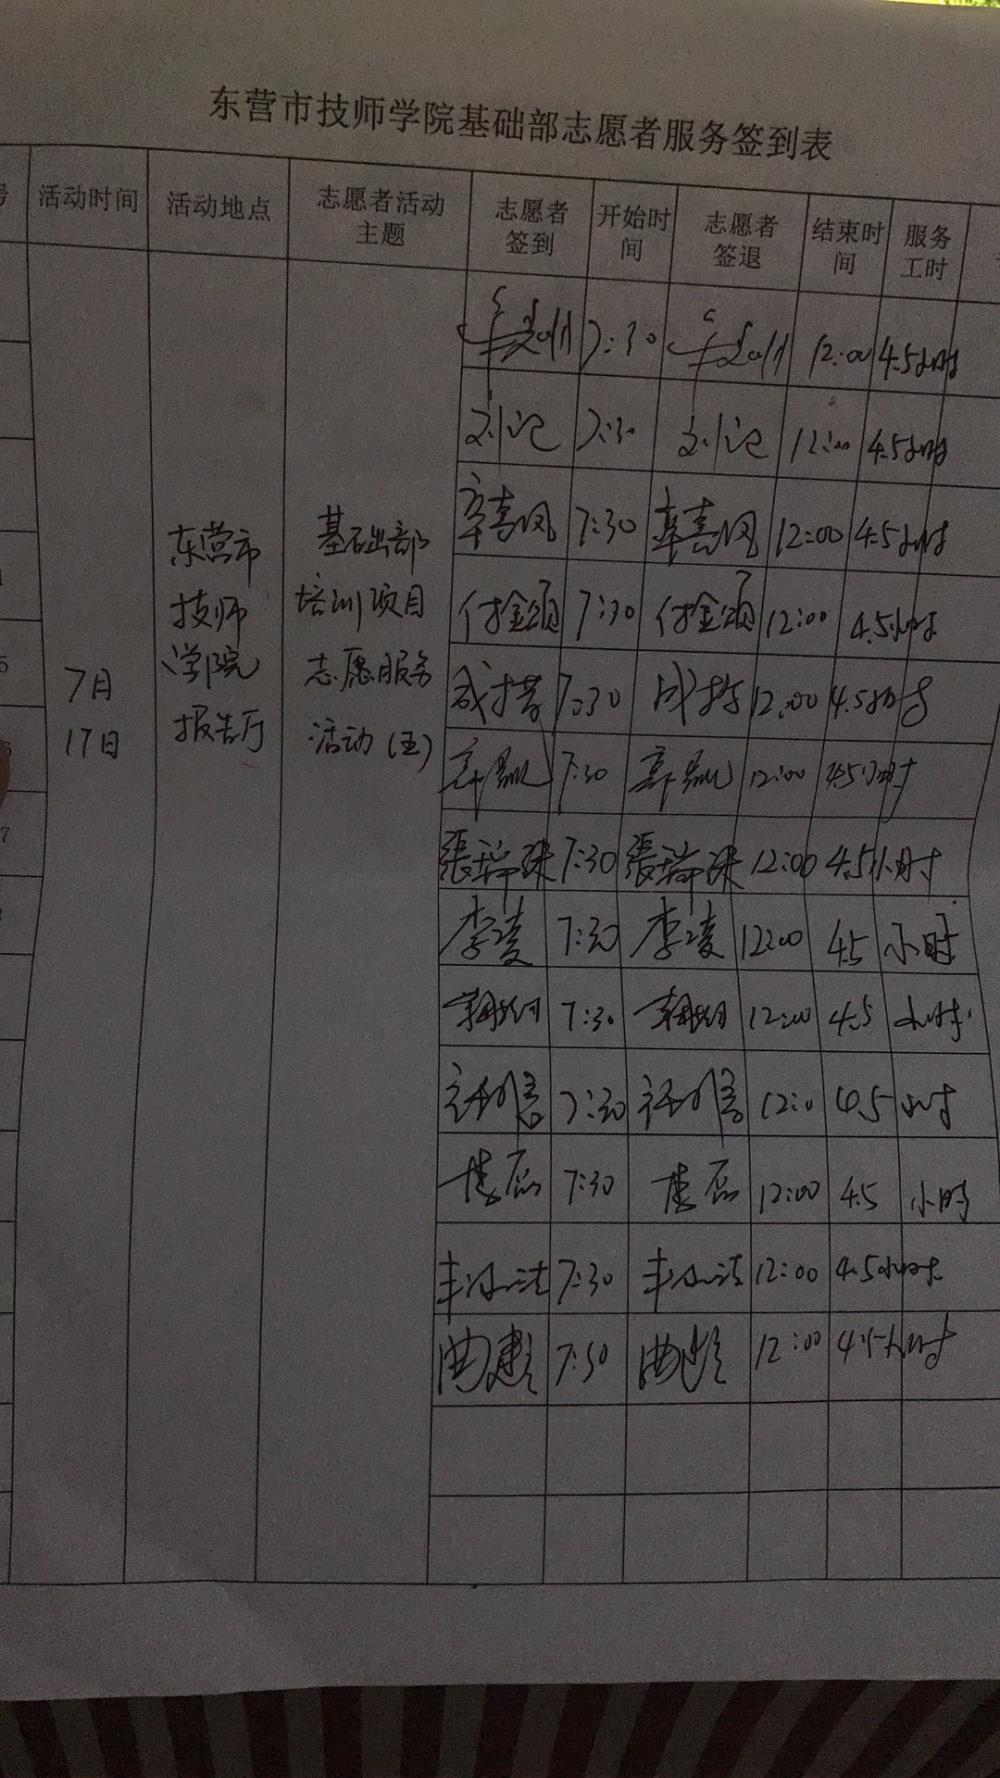 东营市技师学院基础部志愿者服务签到表
号 活动时间 活动地点 志愿者活动主题 志愿者签到 开始时间 志愿者签退 结束时间 服务工时
7月17日
东营市技师学院报告厅
基础部培训项目志愿服务活动(五)
7:30 12:00 4.5小时
刘记 7:30 刘记 12:00 4.5小时
辛喜凤 7:30 辛喜凤 12:00 4.5小时
付金颂 7:30 付金颂 12:00 4.5小时
7:30 12:00 4.5小时
7:30 12:00 4.5小时
張瑞珠 7:30 張瑞珠 12:00 4.5小时
李凌 7:30 李凌 12:00 4.5 小时
7:30 12:00 4.5 小时
7:30 12:0 4.5 小时
7:30 12:00 4.5 小时
7:30 12:00 4.5小时
7:30 12:00 4.5小时
5
7